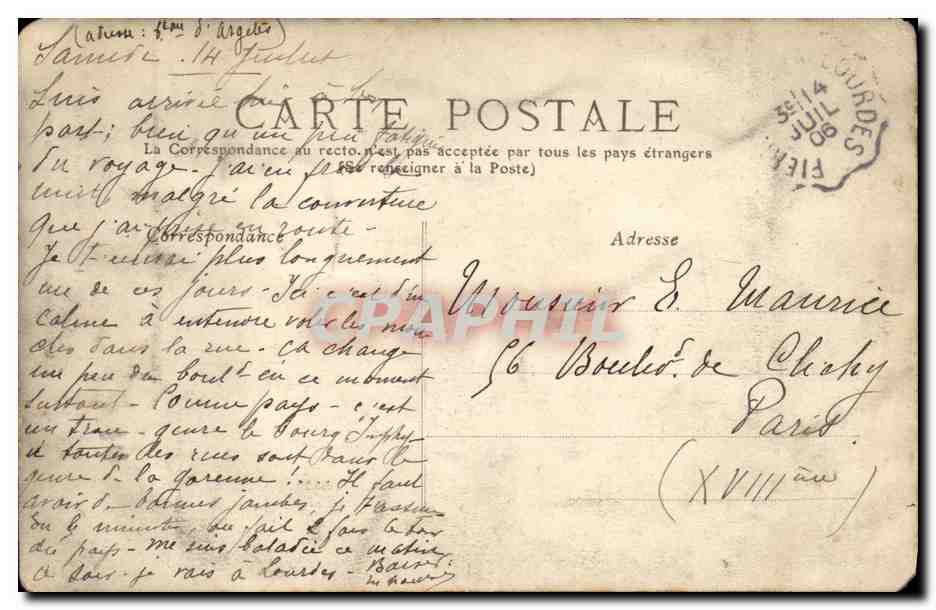 (adresse : d'Argelès)
Samedi 14 Juillet
Suis arrivée hier à
CARTE POSTALE
port, bien qu'un peu fatiguée
La Correspondance au recto n'est pas acceptée par tous les pays étrangers
(Se renseigner à la Poste)
du voyage - j'ai eu froid la
nuit, malgré la couverture
que j'avais en route -
Correspondance
Je t'écrirai plus longuement
un de ces jours - Ici c'est d'un
calme à entendre voler les mou
ches dans la rue - Ça change
un peu du boult en ce moment
surtout - Comme pays - c'est
un trou - genre le bourg
et toutes les rues sont dans le
genre de la garenne !.... Il faut
avoir de bonnes jambes, je t'assure
En le minute, on fait 2 fois le tour
du pays - me suis baladée ce matin
ce soir - je vais à Lourdes - Baisers
Adresse
Monsieur E. Maurice
56 Boulevd. de Clichy
Paris
(XVIIIème)
LOURDES
3e 14
JUIL
06
PIER
CPAPHIL